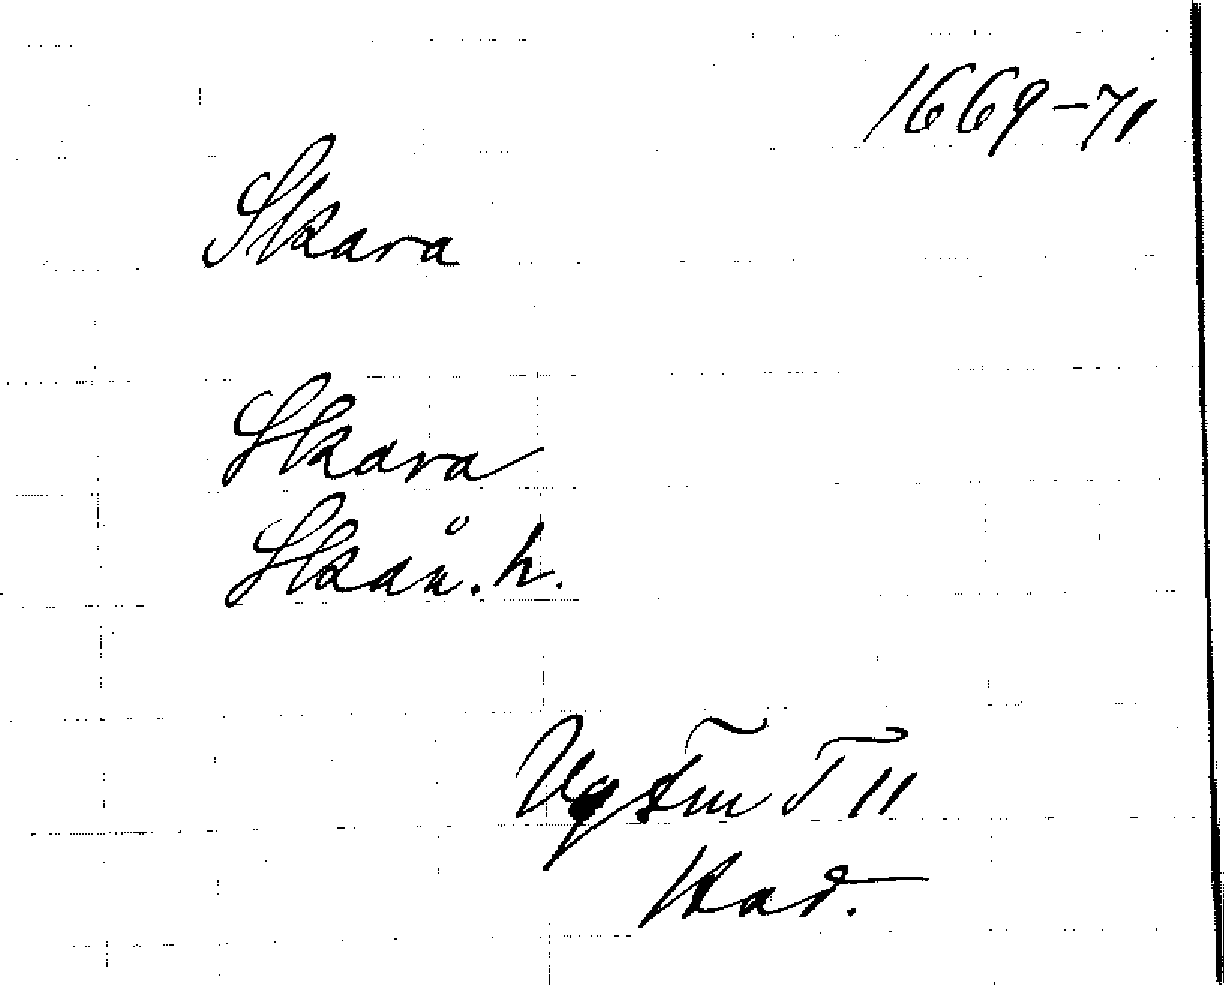 1669-71
Skara
Skara
Skån. h.
Vg Tm T 11
Kad.